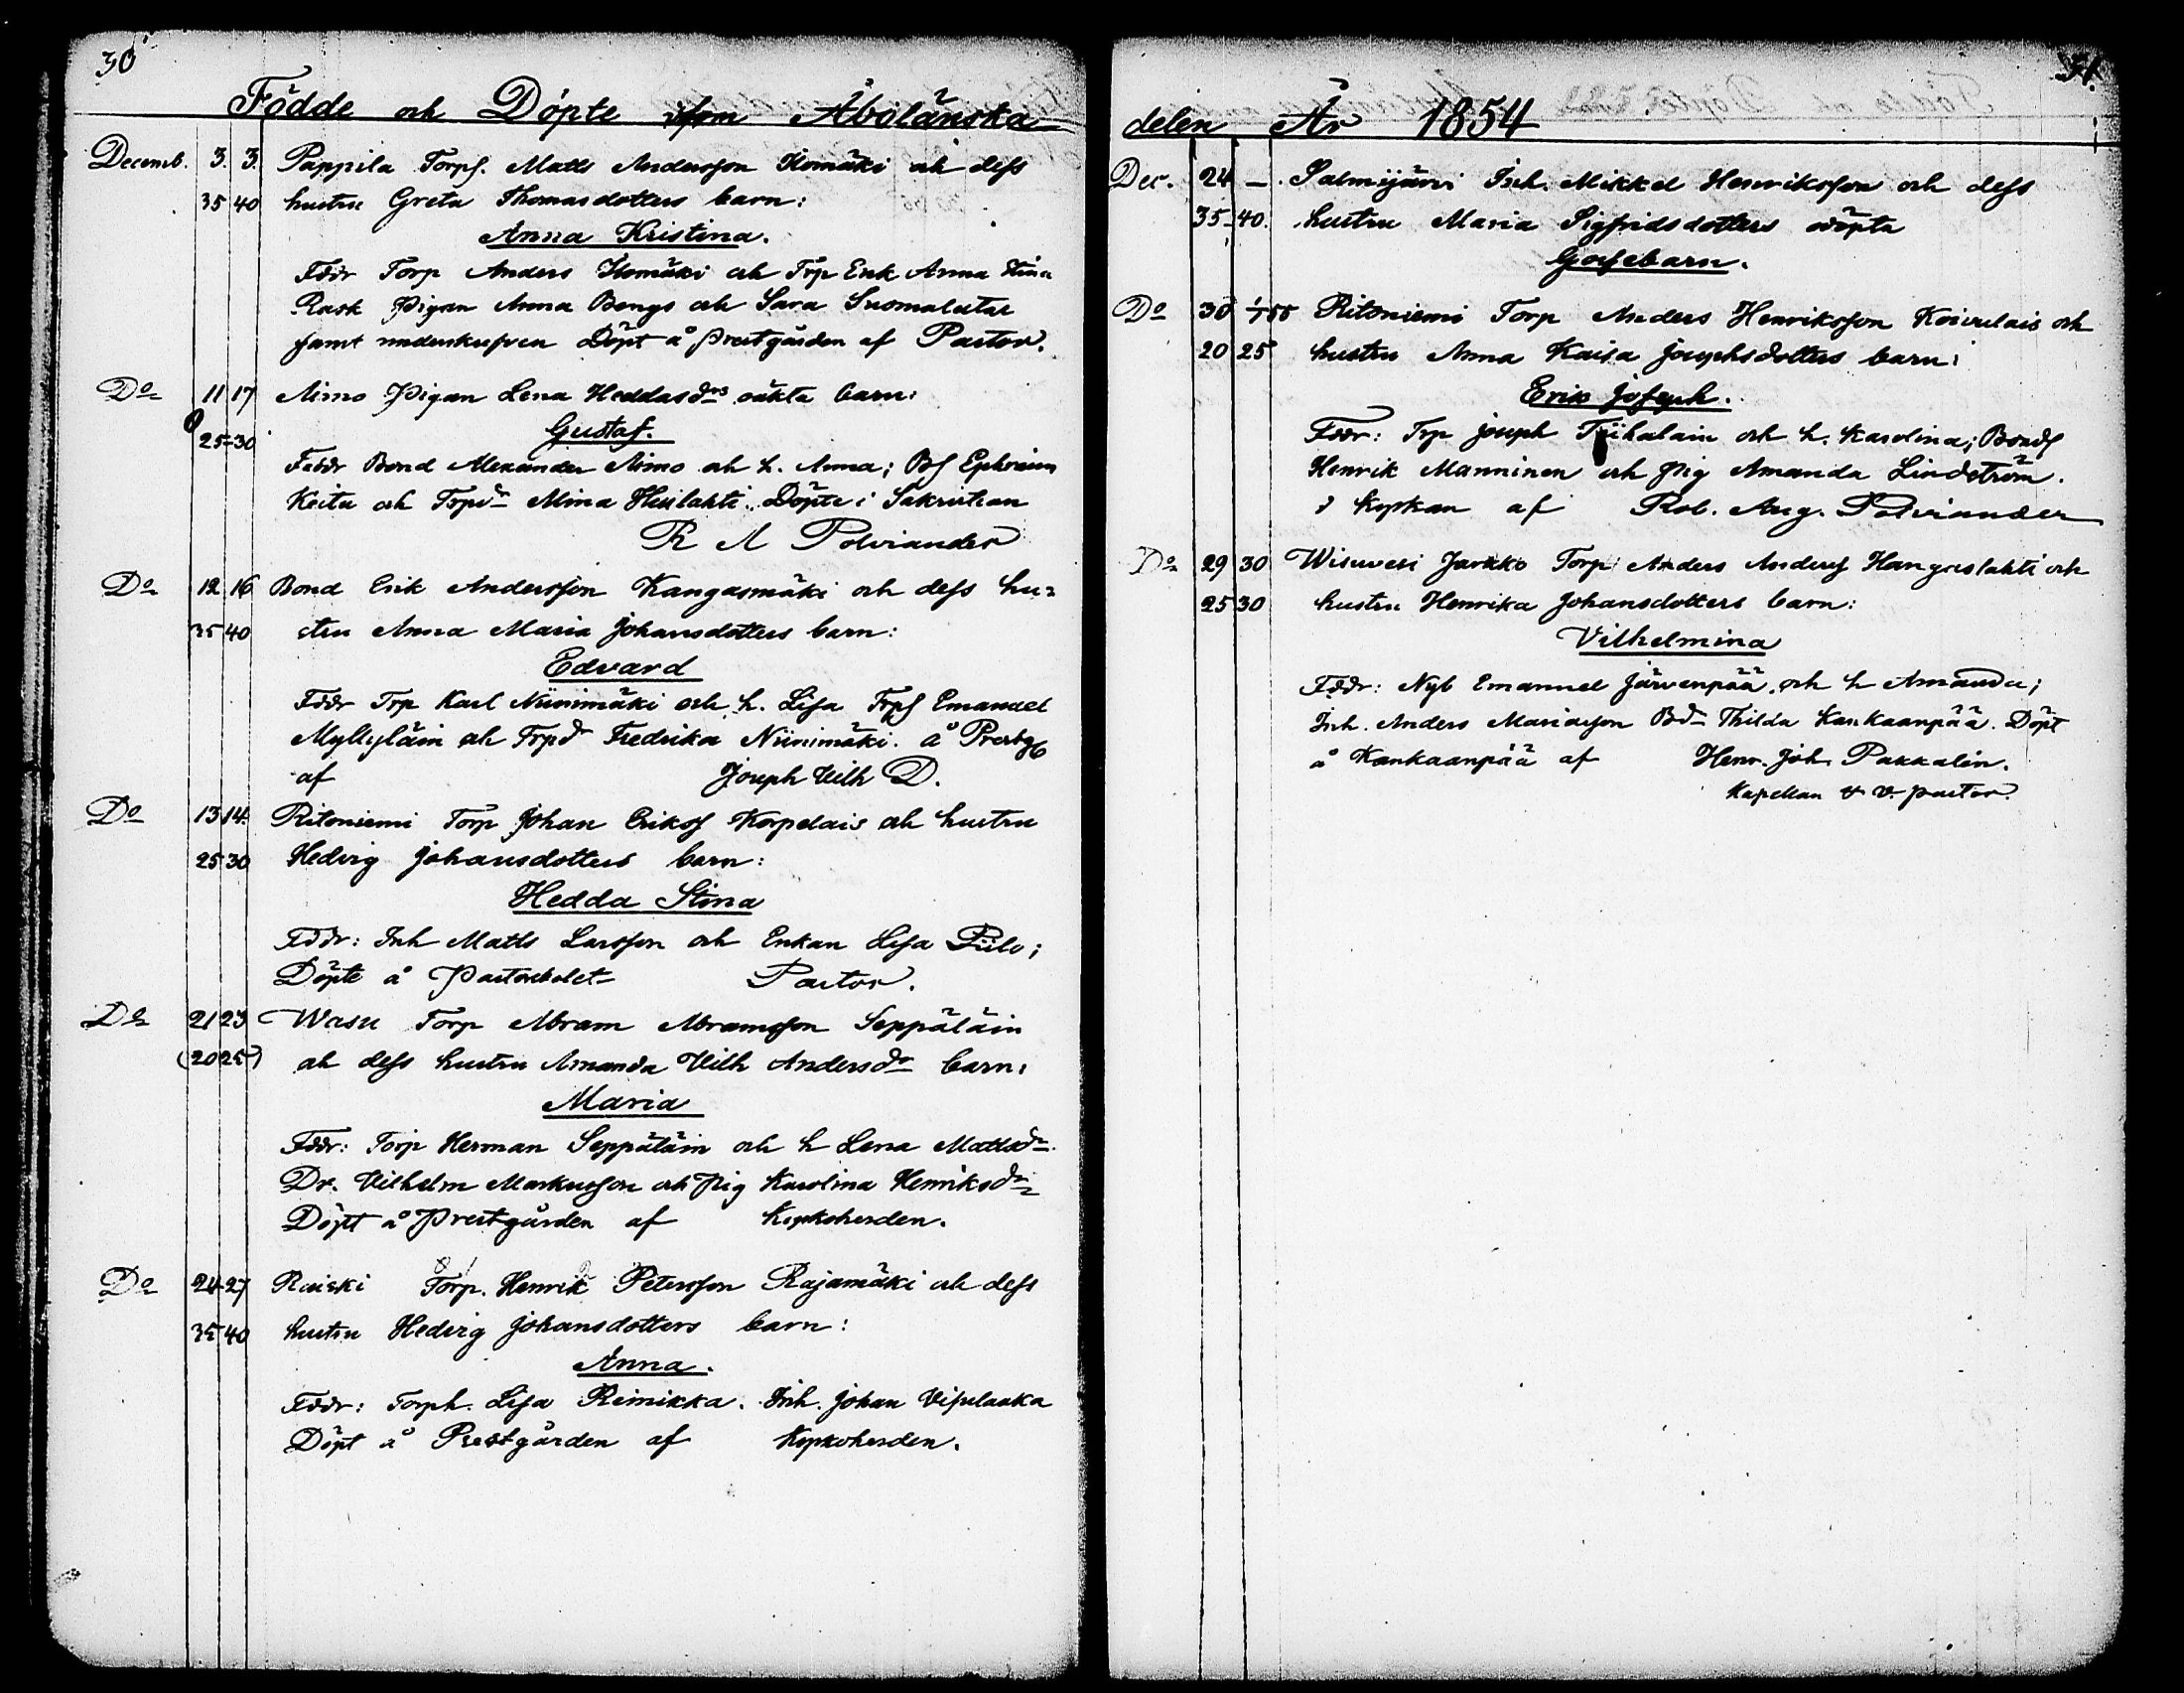 30
Födde och Döpte inom Åbolänska
Decemb. 3. 3. Pappila Torps. Matts Andersson Ilomäki och dess
35 40 hustru Greta Thomasdotters barn:
Anna Kristina.
Fddr Torp Anders Ilomäki och Trp Enk Anna Stina
Rask Pigan Anna Bengs och Sara Suomalutar
samt underskrifven Döpt å prestgården af Pastor.
Do 11 17 Nimo Pigan Lena Heddasdrs oäkta barn:
25-30 Gustaf.
Faddr Bond Alexander Nimo och h. Anna; Bs Ephraim
Keitu och Trpdr Mina Heilahti. Döpte i Sakristian
R A Polviander
Do 12 16 Bond Erik Andersson Kangasmäki och dess hu=
35 40 stru Anna Maria Johansdotters barn:
Edvard
Fddr Trp Karl Niinimäki och h. Lisa Trps Emanuel
Myllyläin och Trpdr Fredrika Niinimäki. å Prestg
af Joseph Vilh D.
Do 13 14. Ritoniemi Torp Johan Eriks Korpelais och hustru
25 30 Hedvig Johansdotters barn:
Hedda Stina
Fddr: Inh Matts Larsson och Enkan Lisa Piilo;
Döpte å Pastorsbolet Pastor.
Do 21 23 Wasu Torp Abram Abramsson Seppäläin
(20 25) och dess hustru Amanda Vilh Andersdr barn:
Maria
Fddr: Torp Herman Seppäläin och h Lena Mattsdr.
Dr. Vilhelm Markusson och Pig Karolina Henriksdr
Döpt å Prestgården af Kyrkoherden.
Do 24 27 Raiski Torp. Henrik Petersson Rajamäki och dess
35 40 hustru Hedvig Johansdotters barn:
Anna.
Fddr: Torph. Lisa Reinikka. Inh. Johan
Döpt å Prestgården af Kyrkoherden.
31.
delen År 1854
Dec. 24 — Salmijärvi Inh. Mikkel Henriksson och dess
35-40. hustru Maria Sigfridsdotters odöpta
Gossebarn.
Do 30 1/1 55 Ritoniemi Torp Anders Henriksson Koivulais och
20 25 hustru Anna Kaisa Josephsdotters barn:
Erik Joseph.
Fddr: Trp Joseph Tiihalain och h. Karolina; Bonds
Henrik Manninen och Pig Amanda Lindström.
i kyrkan af Rob. Aug. Polviander
Do 29 30 Wisuvesi Jarkko Torp Anders Anders Hangaslahti och
25 30 hustru Henrika Johansdotters barn:
Vilhelmina
Fddr: Nyb Emanuel Järvenpää och h Amanda;
Inh. Anders Mariasson Bdr Thilda Kankaanpää. Döpt
å Kankaanpää af Henr. Joh. Pakkalin.
Kapellan & v. pastor.